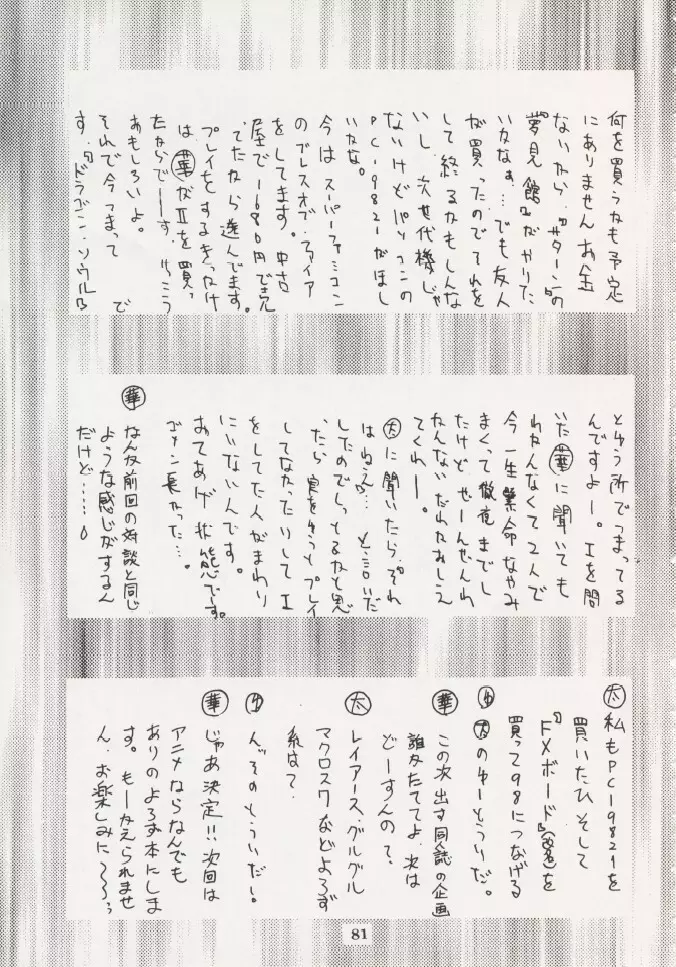 何を買うかも予定
にありません お金
ないから、『サターン』の
夢見館』がやりた
いかなぁ…でも友人
が買ったのでそれを
して終るかもしんな
いし、次世代機じゃ
ないけどパソコンの
PC-9821がほし
いかな。
今はスーパーファミコン
のブレスオブ・ファイア
をしてます。中古
屋で1680円で売
ってたから選んでます。
プレイをするきっかけ
は、華がⅡを買っ
たからでーす、けっこう
おもしろいよ。
それで今つまって で
す。『ドラゴン・ソウル』
とゆう所でつまってる
んですよー。Ⅰを問
いた華に聞いても
わかんなくて2人で
今一生懸命なやみ
まくって徹夜までし
たけど、ぜーんぜんわ
かんないだれかおしえ
てくれー。
太に聞いたら、『それ
はねえ』…と言いだ
したのでしってるかなと思
ったら実をゆうとプレイ
してなかったりしてⅠ
をしてた人がまわり
にいないんです。
おてあげ状態です。
ゴメン長かった…。
華 なんか前回の対談と同じ
ような感じがするん
だけど……
太 私もPC-9821を
買いたひ そして
『FXボード』(改名)を
買って98につなげる
ゆ 太のゆーとうりだ。
華 この次出す同人誌の企画
誰かたててよ、次は
どーすんの?
太 レイアース、グルグル
マクロスクなどよろず
系はて、
ゆ ん、そのとうりだー。
華 じゃあ決定!!次回は
アニメならなんでも
ありのよろず本にしま
す。もーかえられませ
ん。お楽しみに〜〜う
81